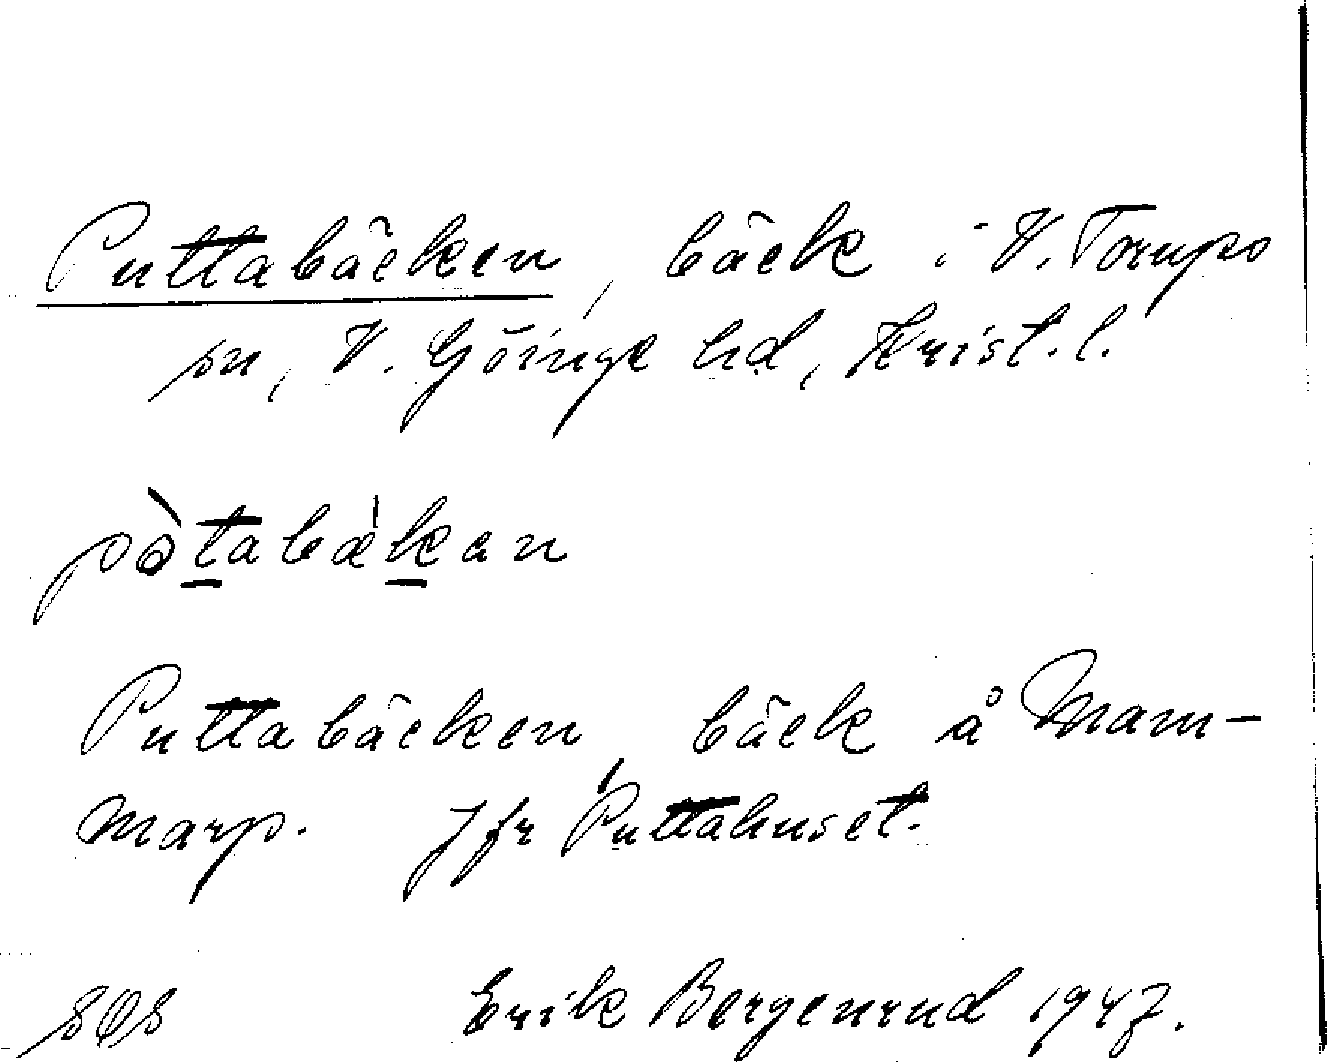 Puttabäcken, bäck i V. Torups
sn, V. Göinge hd, Krist. l.
pòtabækan
Puttabäcken, bäck å Mam-
marp. Jfr Puttahuset.
Erik Bergenrud 1947.